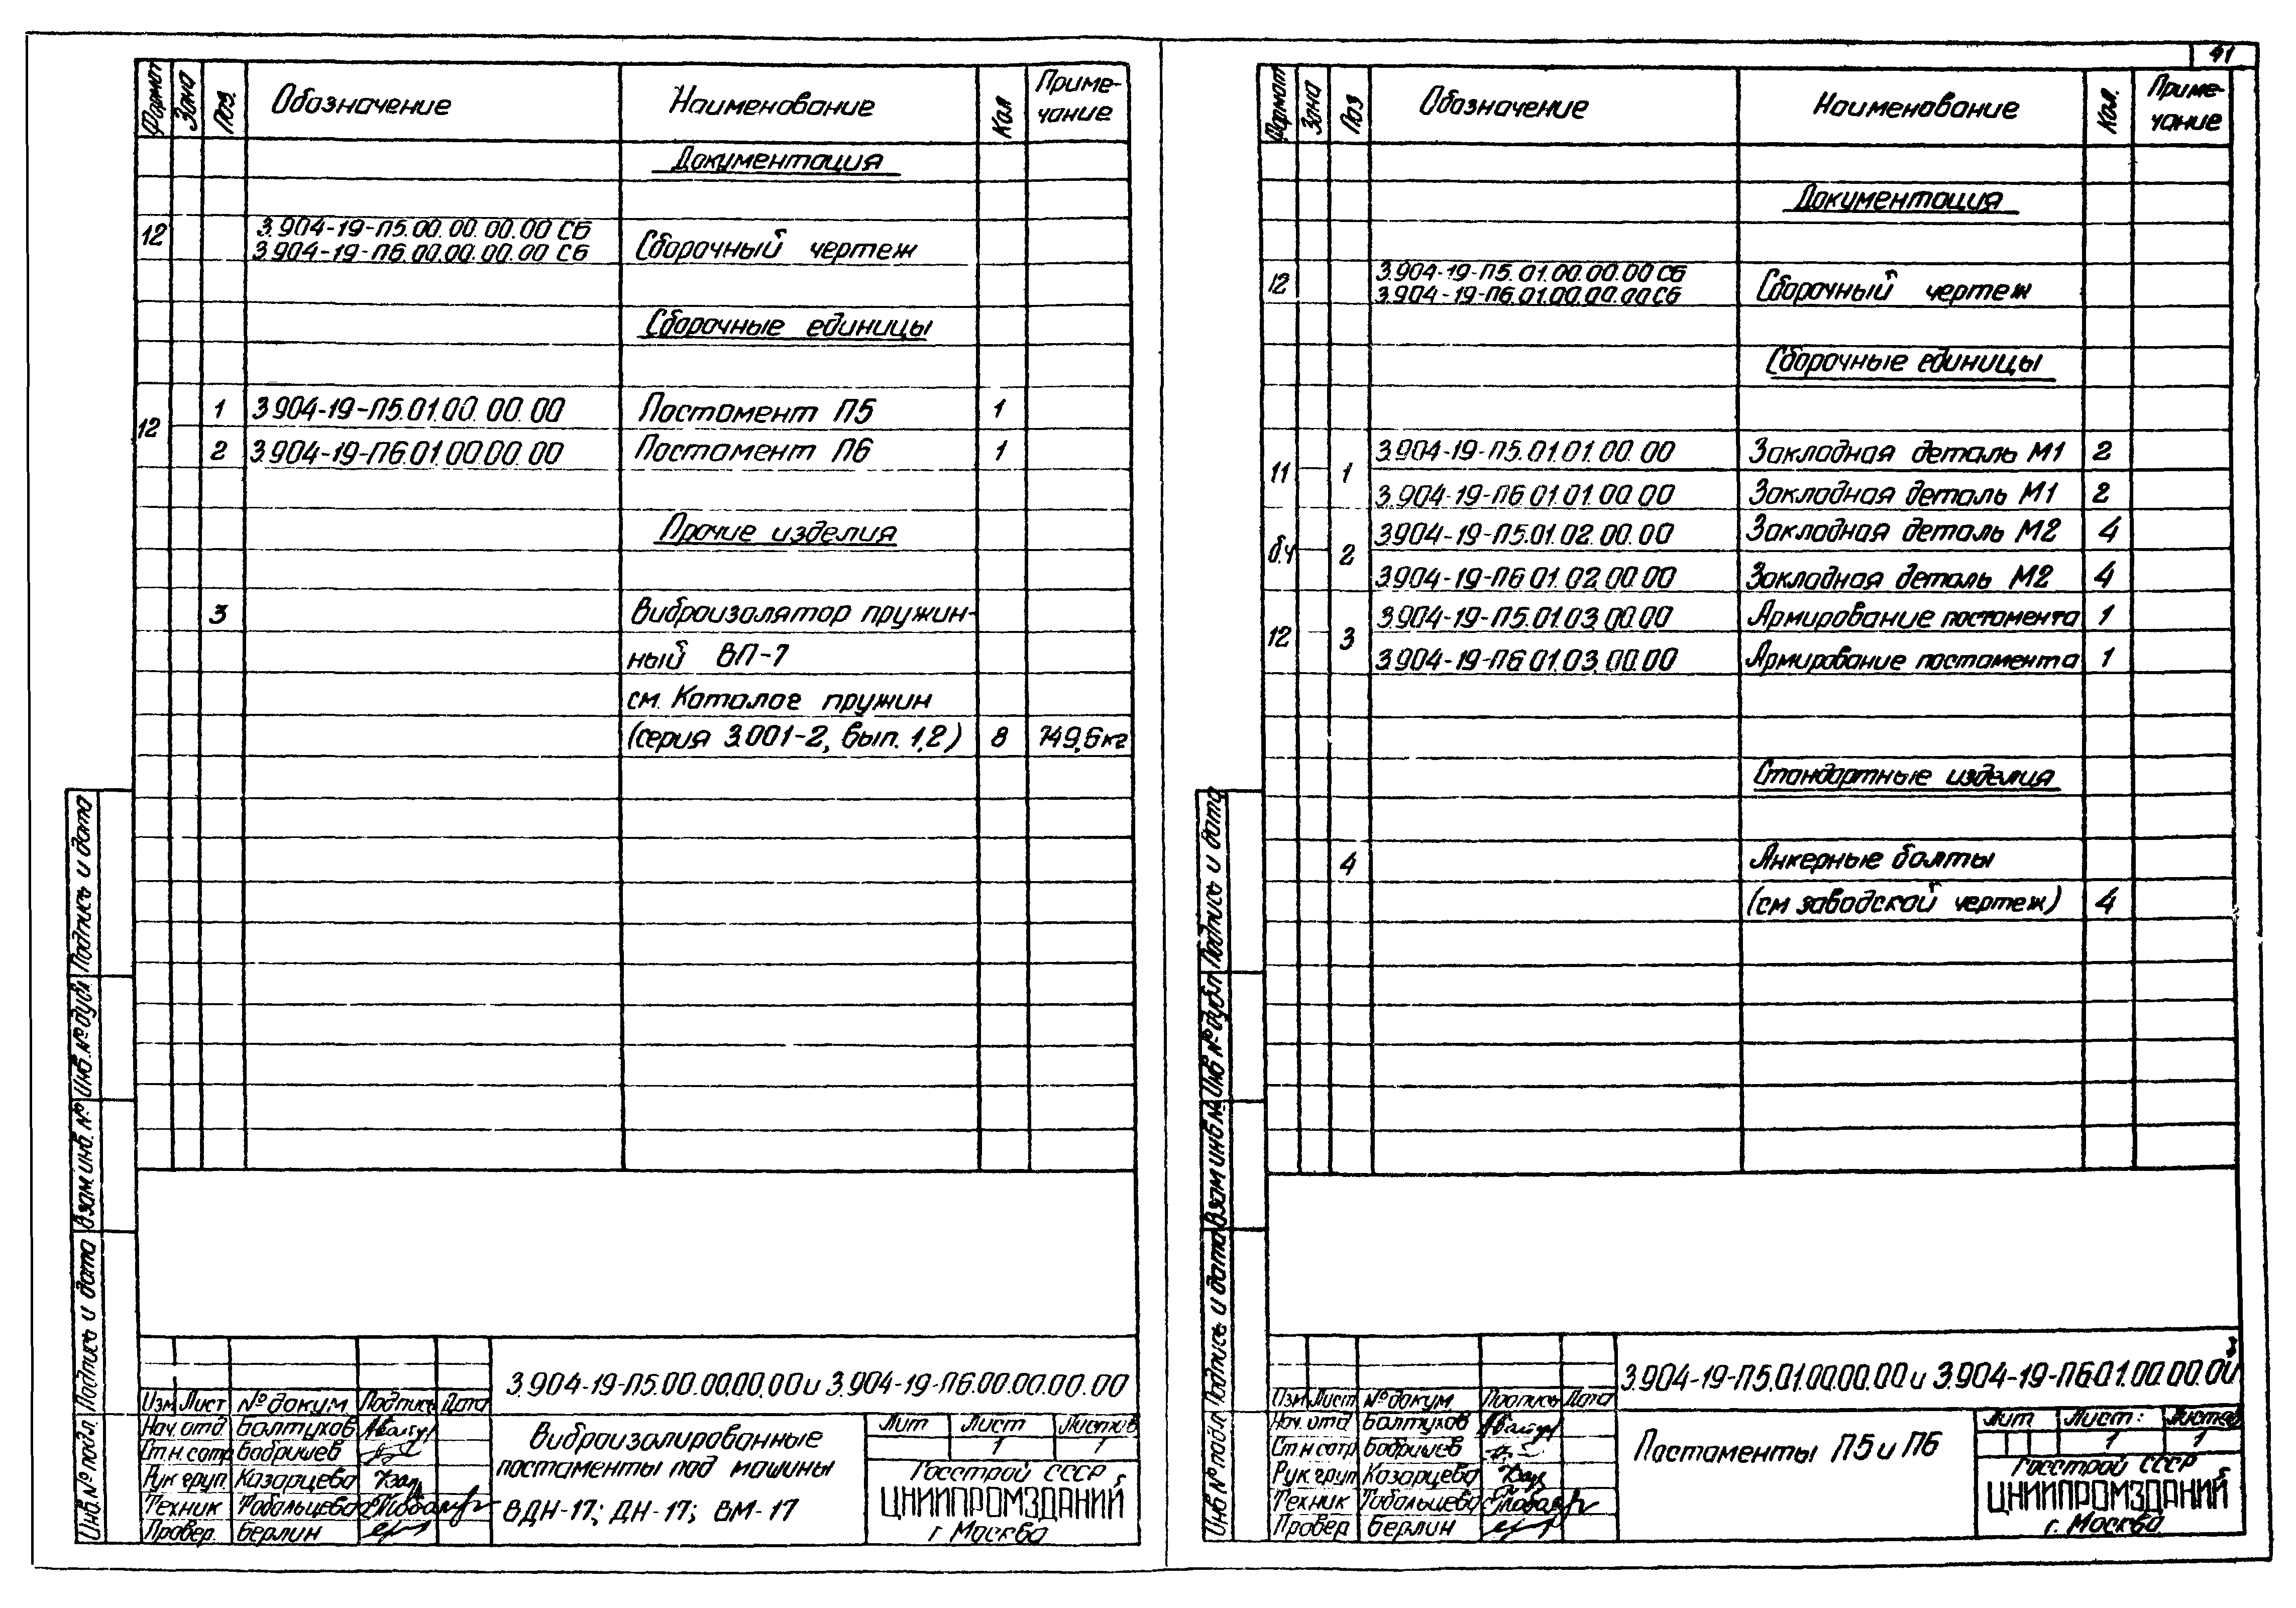 41
Формат Зона Поз. Обозначение Наименование Кол Приме-
чание
Документация
12 3.904-19-П5.00.00.00.00 СБ
3.904-19-П6.00.00.00.00 СБ Сборочный чертеж
Сборочные единицы
12 1 3.904-19-П5.01.00.00.00 Постамент П5 1
2 3.904-19-П6.01.00.00.00 Постамент П6 1
Прочие изделия
3 Виброизолятор пружин-
ный ВП-7
см. Каталог пружин
(серия 3.001-2, вып. 1,2) 8 749,6 кг
Инв.№ подл. Подпись и дата Взам инв. № Инв.№ дубл Подпись и дата
3.904-19-П5.00.00.00.00 и 3.904-19-П6.00.00.00.00
Изм Лист № докум. Подпись Дата
Нач. отд Балтухов
Ст.н.сотр Бабришев
Рук груп. Казарцева
Техник Тобольцева
Провер. Берлин
Виброизолированные
постаменты под машины
ВДН-17; ДН-17; ВМ-17
Лит Лист Листов
1 1
Госстрой СССР
ЦНИИПРОМЗДАНИЙ
г Москва
Формат Зона Поз Обозначение Наименование Кол. Приме-
чание
Документация
12 3.904-19-П5.01.00.00.00 СБ
3.904-19-П6.01.00.00.00 СБ Сборочный чертеж
Сборочные единицы
11 1 3.904-19-П5.01.01.00.00 Закладная деталь М1 2
3.904-19-П6.01.01.00.00 Закладная деталь М1 2
б.ч 2 3.904-19-П5.01.02.00.00 Закладная деталь М2 4
3.904-19-П6.01.02.00.00 Закладная деталь М2 4
12 3 3.904-19-П5.01.03.00.00 Армирование постамента 1
3.904-19-П6.01.03.00.00 Армирование постамента 1
Стандартные изделия
4 Анкерные болты
(см заводской чертеж) 4
Инв № подл Подпись и дата Взам инв № Инв № дубл Подпись и дата
3.904-19-П5.01.00.00.00 и 3.904-19-П6.01.00.00.00
Изм Лист № докум Подпись Дата
Нач. отд Балтухов
Ст н сотр Бабришев
Рук груп Казарцева
Техник Тобольцева
Провер Берлин
Постаменты П5 и П6
Лит Лист: Листов
1 1
Госстрой СССР
ЦНИИПРОМЗДАНИЙ
г. Москва